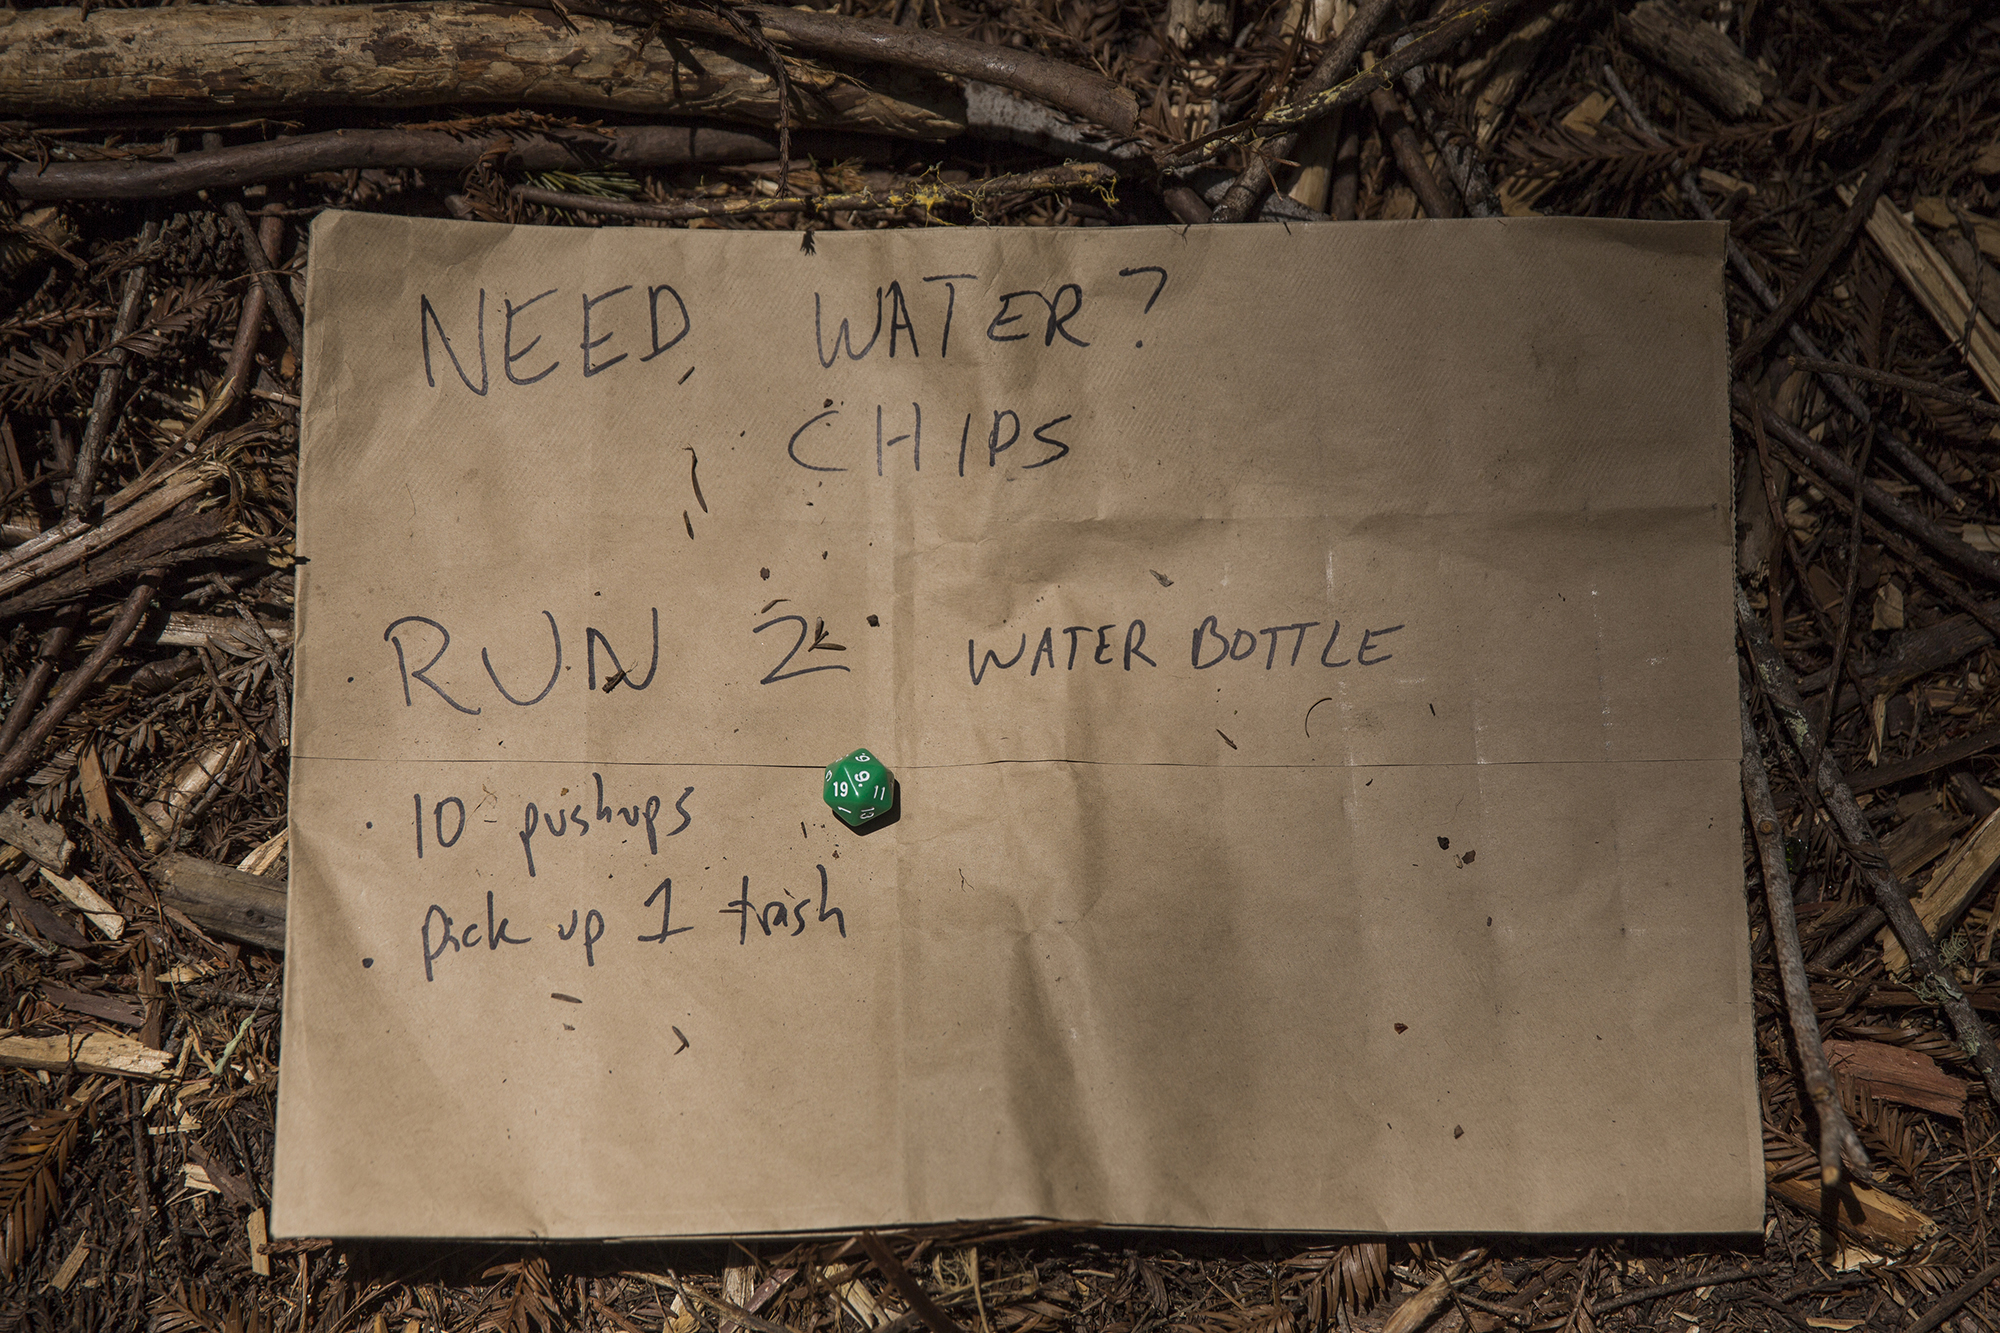 NEED WATER?
CHIPS
RUN 2 WATER BOTTLE
• 10 pushups
• pick up 1 trash
9
6
19
11
1
13